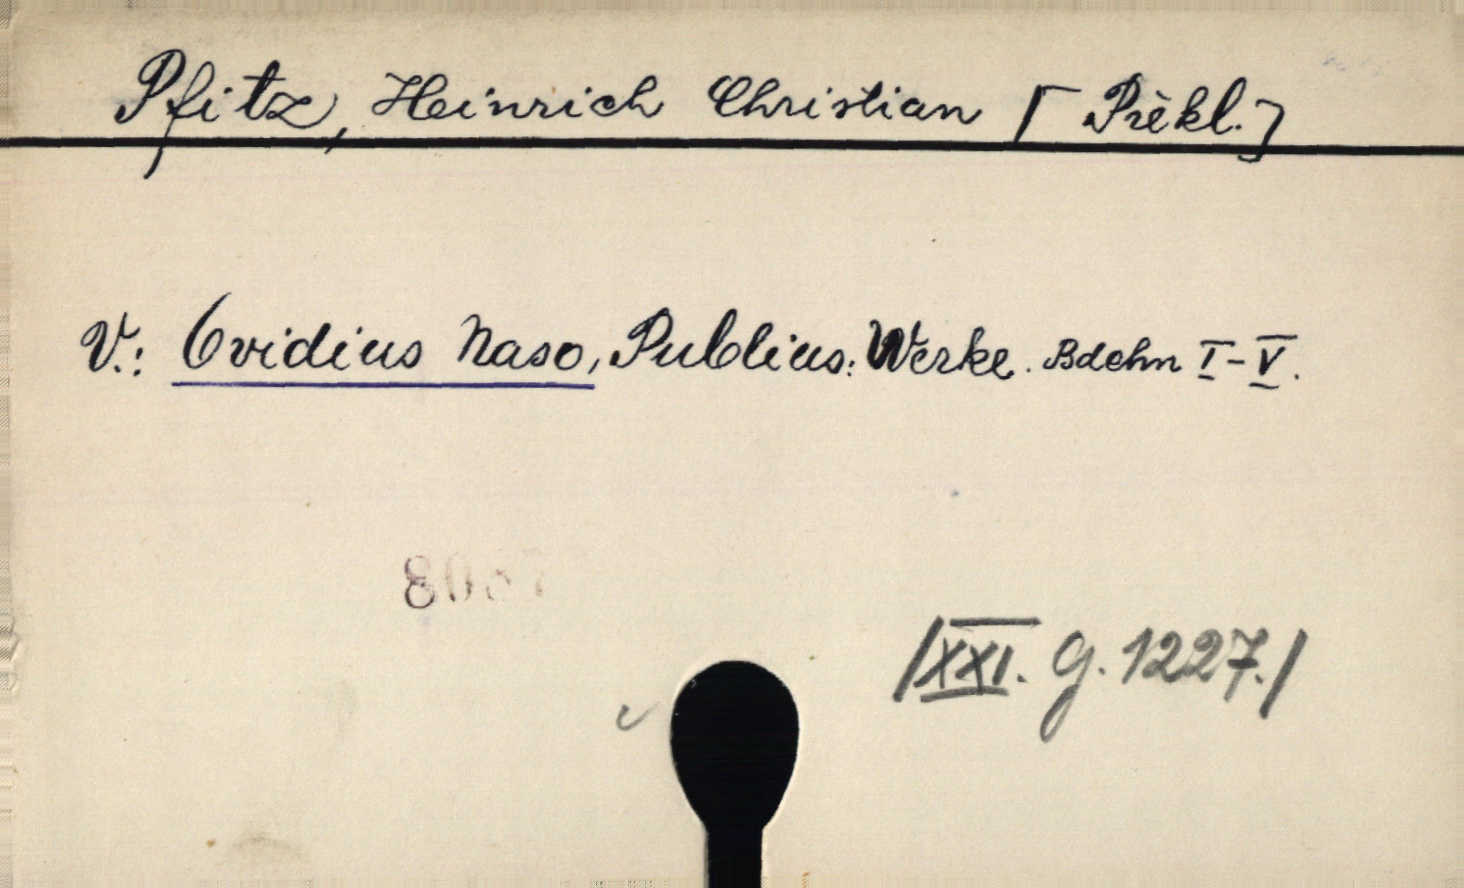 Pfitz, Heinrich Christian [Překl.]
V.: Ovidius Naso, Publius: Werke. Bdchn I-V.
/XXI. G. 1227./